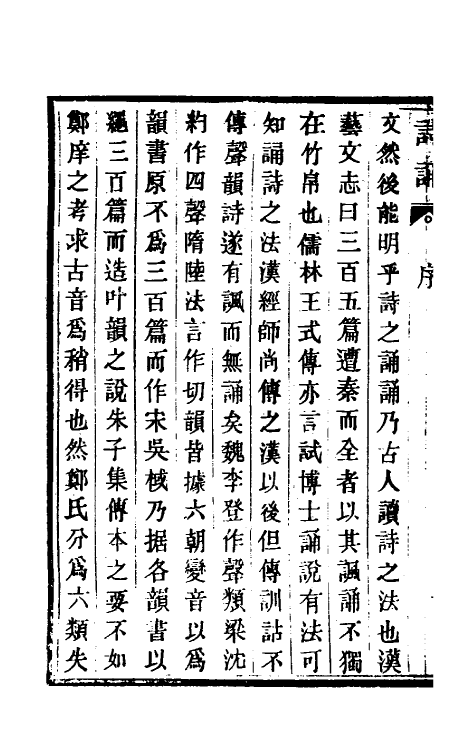 詩誦
序
文然後能明乎詩之誦誦乃古人讀詩之法也漢
藝文志曰三百五篇遭秦而全者以其諷誦不獨
在竹帛也儒林王式傳亦言試博士誦說有法可
知誦詩之法漢經師尚傳之漢以後但傳訓詁不
傳聲韻詩遂有諷而無誦矣魏李登作聲類梁沈
約作四聲隋陸法言作切韻皆據六朝變音以爲
韻書原不爲三百篇而作宋吳棫乃据各韻書以
繩三百篇而造叶韻之說朱子集傳本之要不如
鄭庠之考求古音爲稍得也然鄭氏分爲六類失